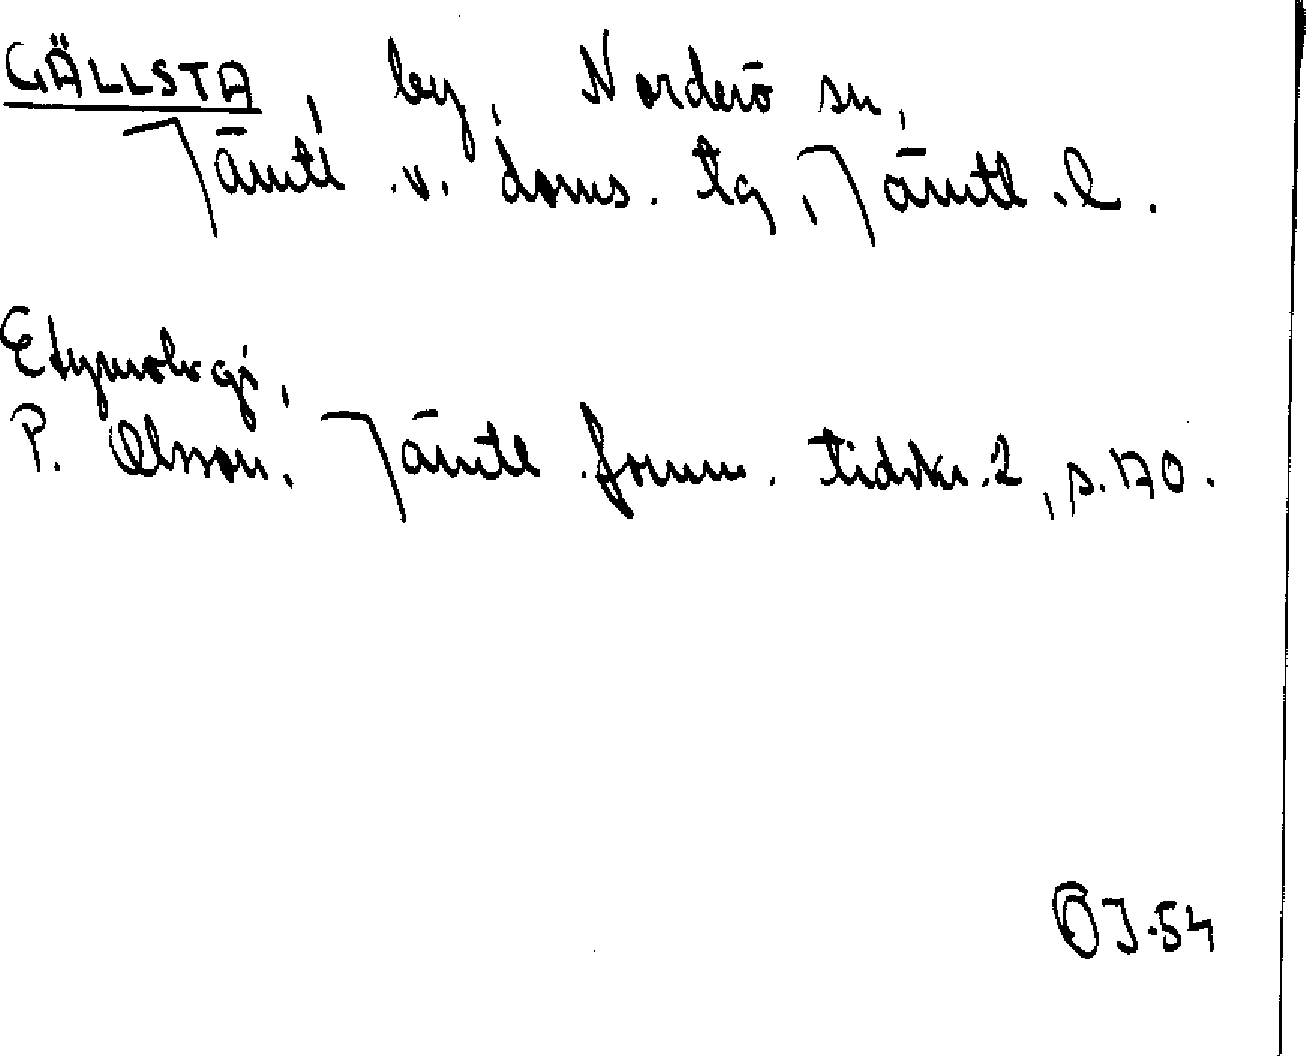 GÄLLSTA, by, Norderö sn,
Jämtl. v. doms. tg, Jämtl. l.
Etymologi,
P. Olsson, Jämtl. fornm. tidskr. 2, s. 170.
OJ. 54